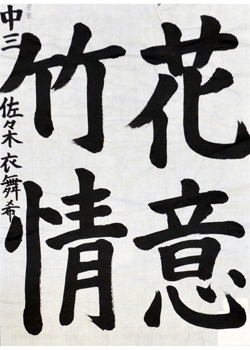 花意
竹情
中三 佐々木衣舞希